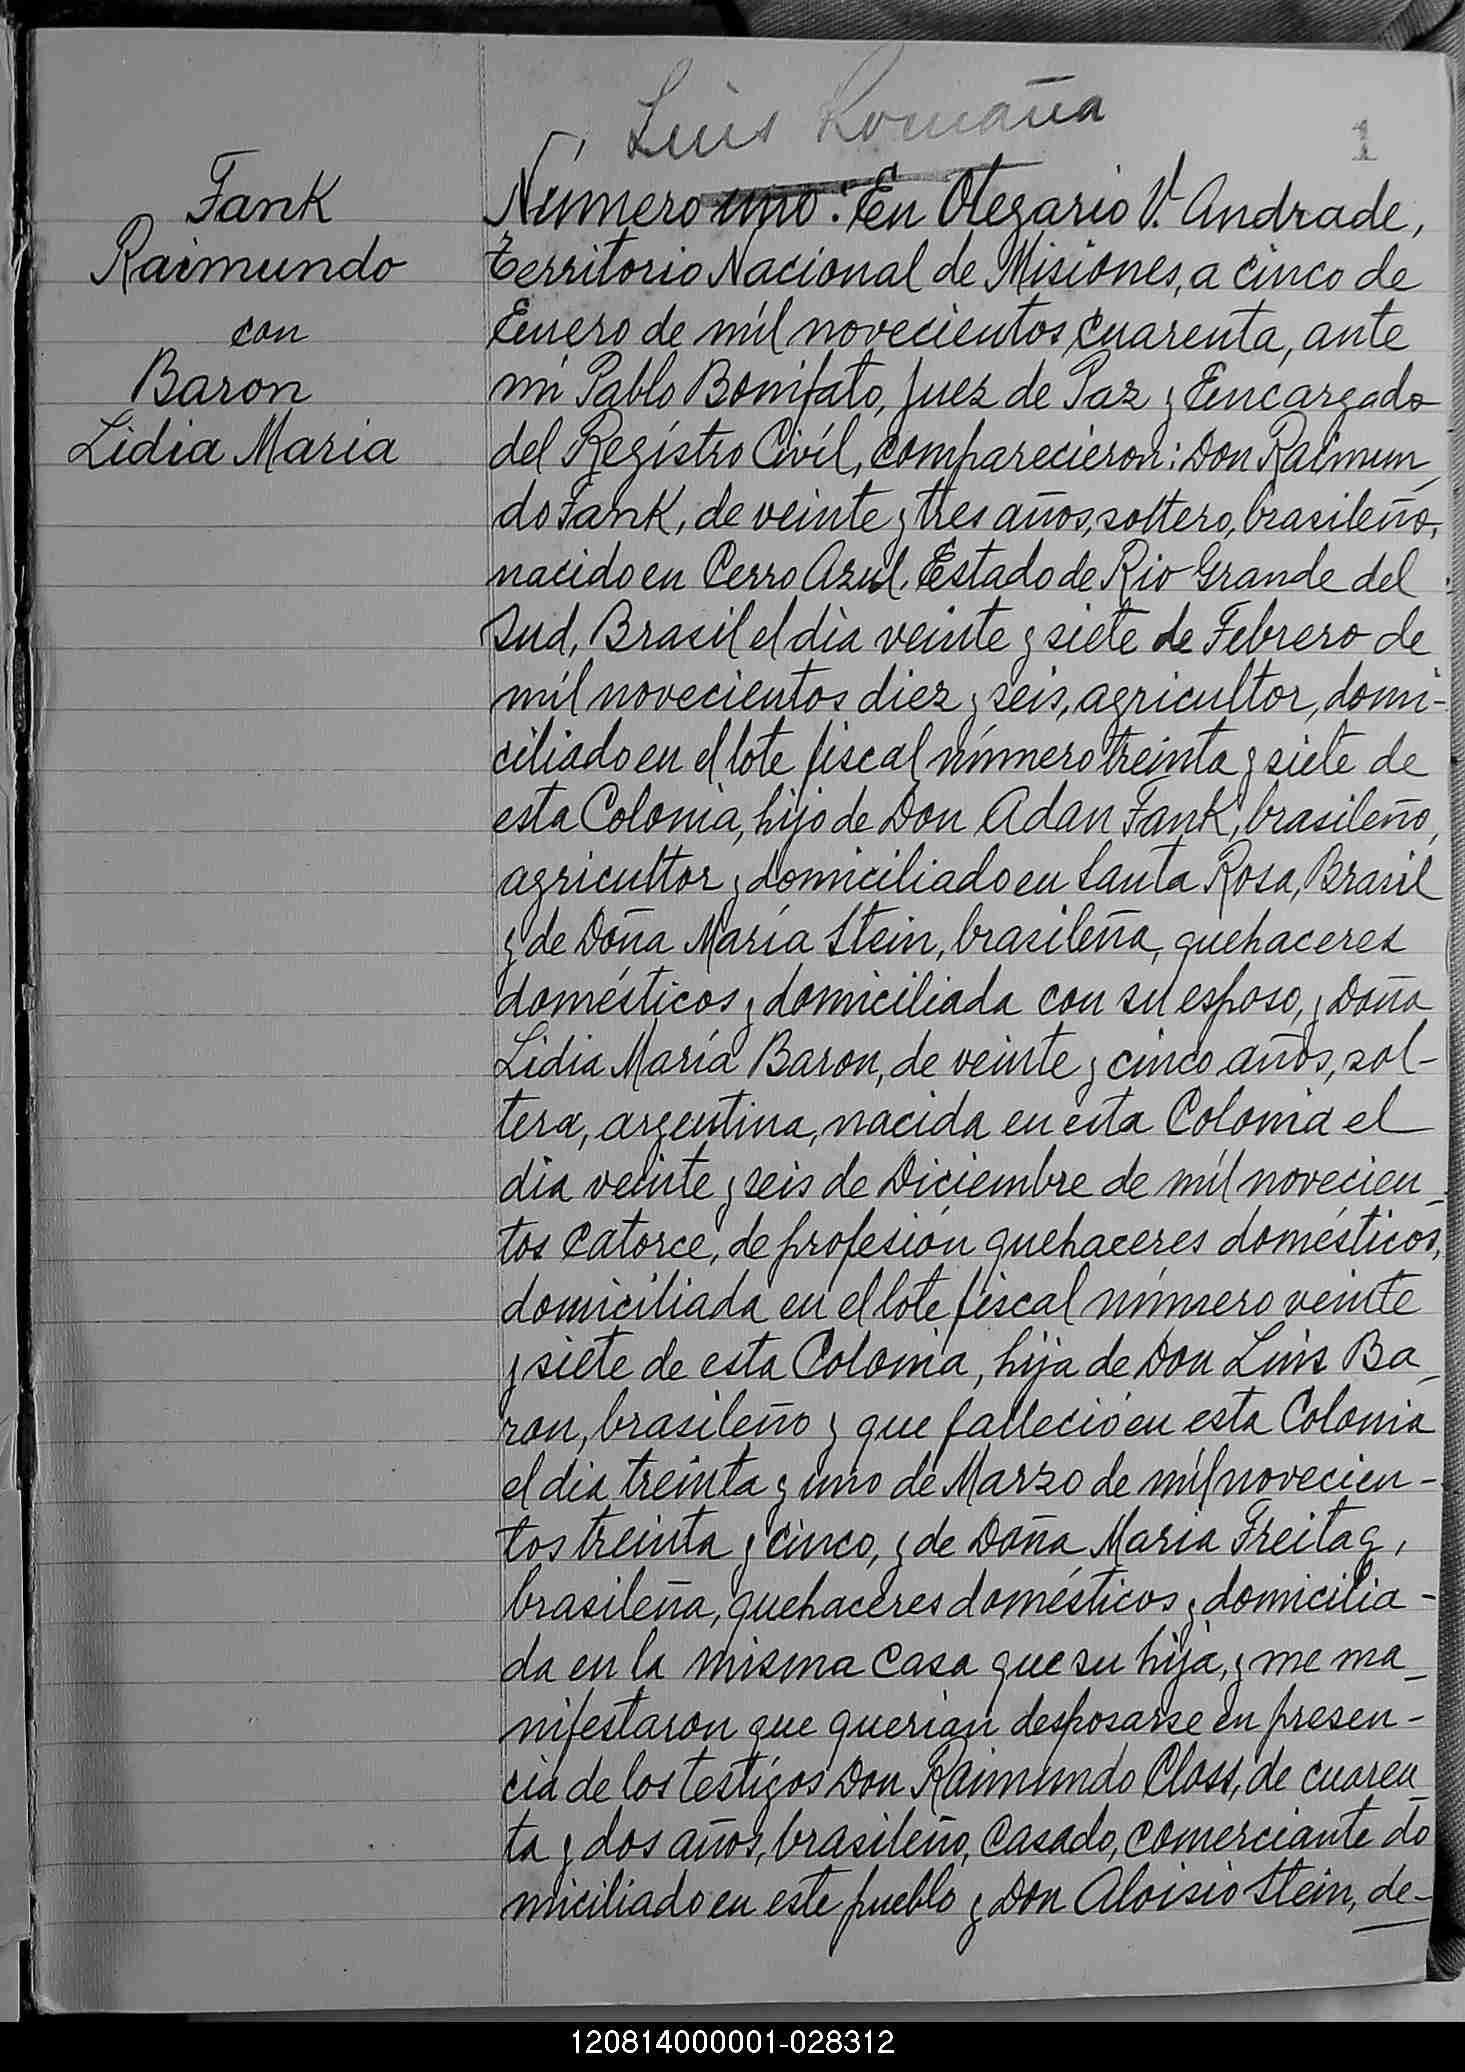 Luis Romaña
1
Fank
Raimundo
con
Baron
Lidia Maria
Número uno: En Olegario V. Andrade,
territorio Nacional de Misiones, a cinco de
Enero de mil novecientos cuarenta, ante
mi Pablo Bonifato, Juez de Paz y Encargado
del Registro Civil, comparecieron: Don Raimun_
do Fank, de veinte y tres años, soltero, brasileño,
nacido en Cerro Azul, Estado de Rio Grande del
Sud, Brasil el dia veinte y siete de Febrero de
mil novecientos diez y seis, agricultor, domi-
ciliado en el lote fiscal número treinta y siete de
esta Colonia, hijo de Don Adan Fank, brasileño,
agricultor y domiciliado en Santa Rosa, Brasil
y de Doña María Stein, brasileña, quehaceres
domésticos y domiciliada con su esposo, y Doña
Lidia María Baron, de veinte y cinco años, sol-
tera, argentina, nacida en esta Colonia el
dia veinte y seis de Diciembre de mil novecien_
tos catorce, de profesión quehaceres domésticos,
domiciliada en el lote fiscal número veinte
y siete de esta Colonia, hija de Don Luis Ba_
ron, brasileño y que falleció en esta Colonia
el dia treinta y uno de Marzo de mil novecien-
tos treinta y cinco, y de Doña Maria Freitag,
brasileña, quehaceres domésticos y domicilia-
da en la misma casa que su hija, y me ma_
nifestaron que querian desposarse en presen-
cia de los testigos Don Raimundo Closs, de cuaren_
ta y dos años, brasileño, casado, comerciante do
miciliado en este pueblo y Don Aloisio Stein, de-
120814000001-028312